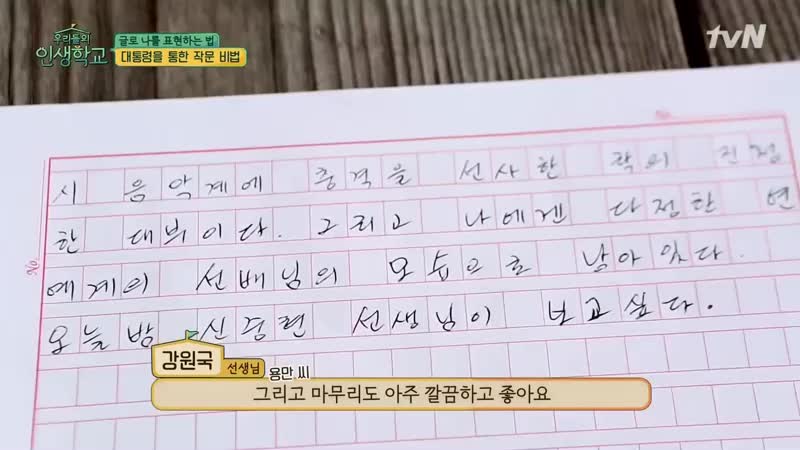 우리들의
인생학교
글로 나를 표현하는 법
대통령을 통한 작문 비법
tvN
No.
시 음악계에 충격을 선사한 락의 진정
한 대부이다. 그리고 나에겐 다정한 연
예계의 선배님의 모습으로 남아있다.
오늘밤 신중현 선생님이 보고싶다.
No.
강원국 선생님
용만 씨
그리고 마무리도 아주 깔끔하고 좋아요